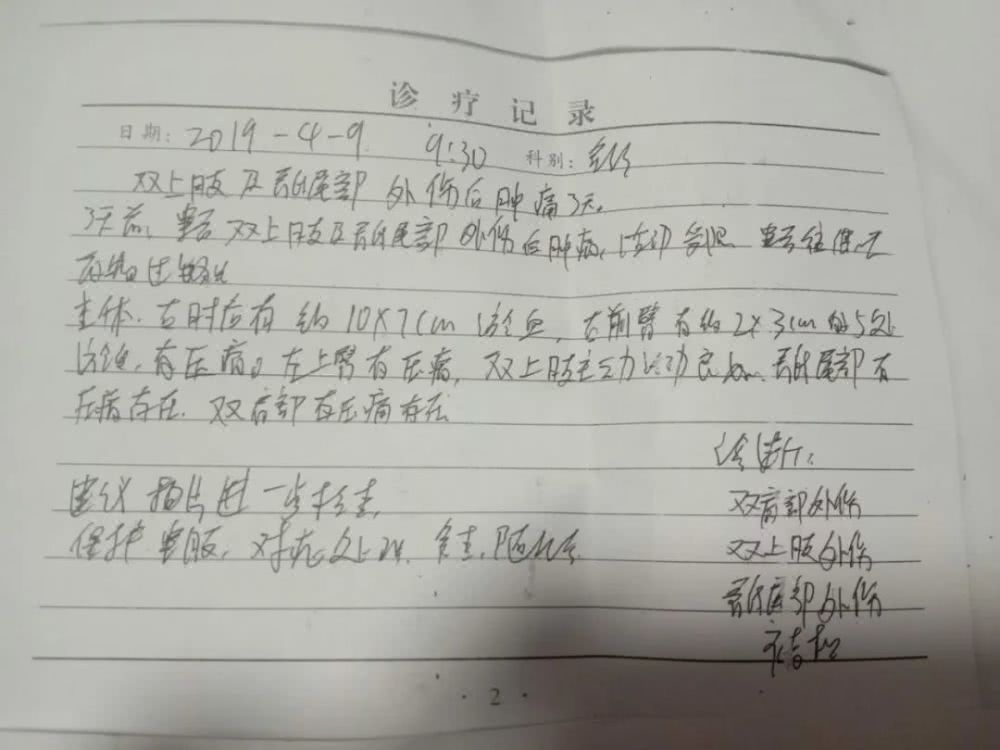 诊疗记录
日期: 2019-4-9 9:30 科别:
双上肢及骶尾部外伤后肿痛3天。
3天前, 患者双上肢及骶尾部外伤后肿痛, 活动受限
查体: 右肘后有约10X7cm淤血, 右前臂有约2X3cm的5处
淤血, 有压痛。左上臂有压痛, 双上肢主动活动良好, 骶尾部有
压痛存在. 双肩部有压痛存在
诊断:
建议拍片进一步检查,
双肩部外伤
保护患肢, 对症处理, 复查, 随诊
双上肢外伤
骶尾部外伤
· 2 ·